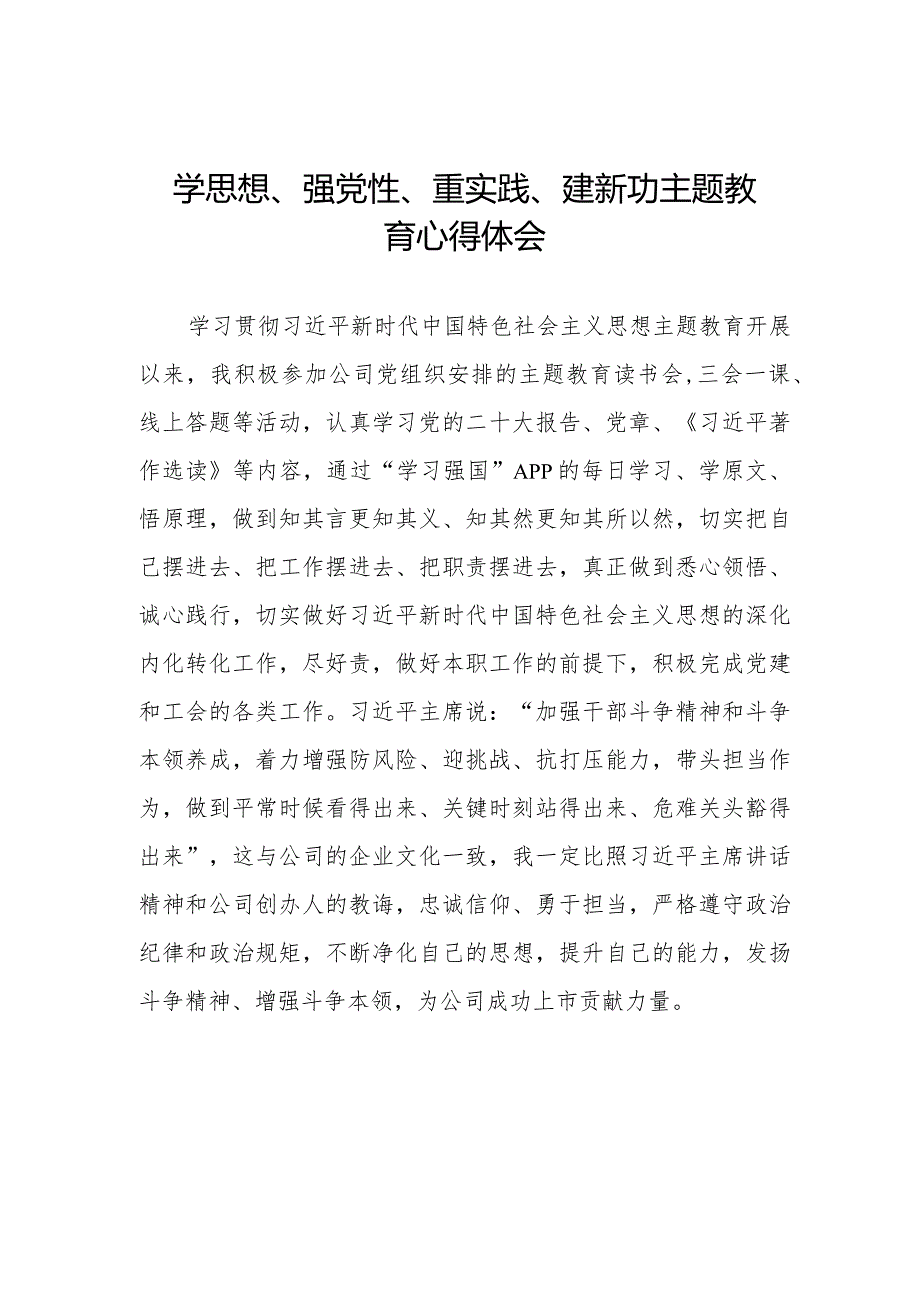 学思想、强党性、重实践、建新功主题教
育心得体会
学习贯彻习近平新时代中国特色社会主义思想主题教育开展
以来，我积极参加公司党组织安排的主题教育读书会,三会一课、
线上答题等活动，认真学习党的二十大报告、党章、《习近平著
作选读》等内容，通过“学习强国”APP的每日学习、学原文、
悟原理，做到知其言更知其义、知其然更知其所以然，切实把自
己摆进去、把工作摆进去、把职责摆进去，真正做到悉心领悟、
诚心践行，切实做好习近平新时代中国特色社会主义思想的深化
内化转化工作，尽好责，做好本职工作的前提下，积极完成党建
和工会的各类工作。习近平主席说：“加强干部斗争精神和斗争
本领养成，着力增强防风险、迎挑战、抗打压能力，带头担当作
为，做到平常时候看得出来、关键时刻站得出来、危难关头豁得
出来”，这与公司的企业文化一致，我一定比照习近平主席讲话
精神和公司创办人的教诲，忠诚信仰、勇于担当，严格遵守政治
纪律和政治规矩，不断净化自己的思想，提升自己的能力，发扬
斗争精神、增强斗争本领，为公司成功上市贡献力量。